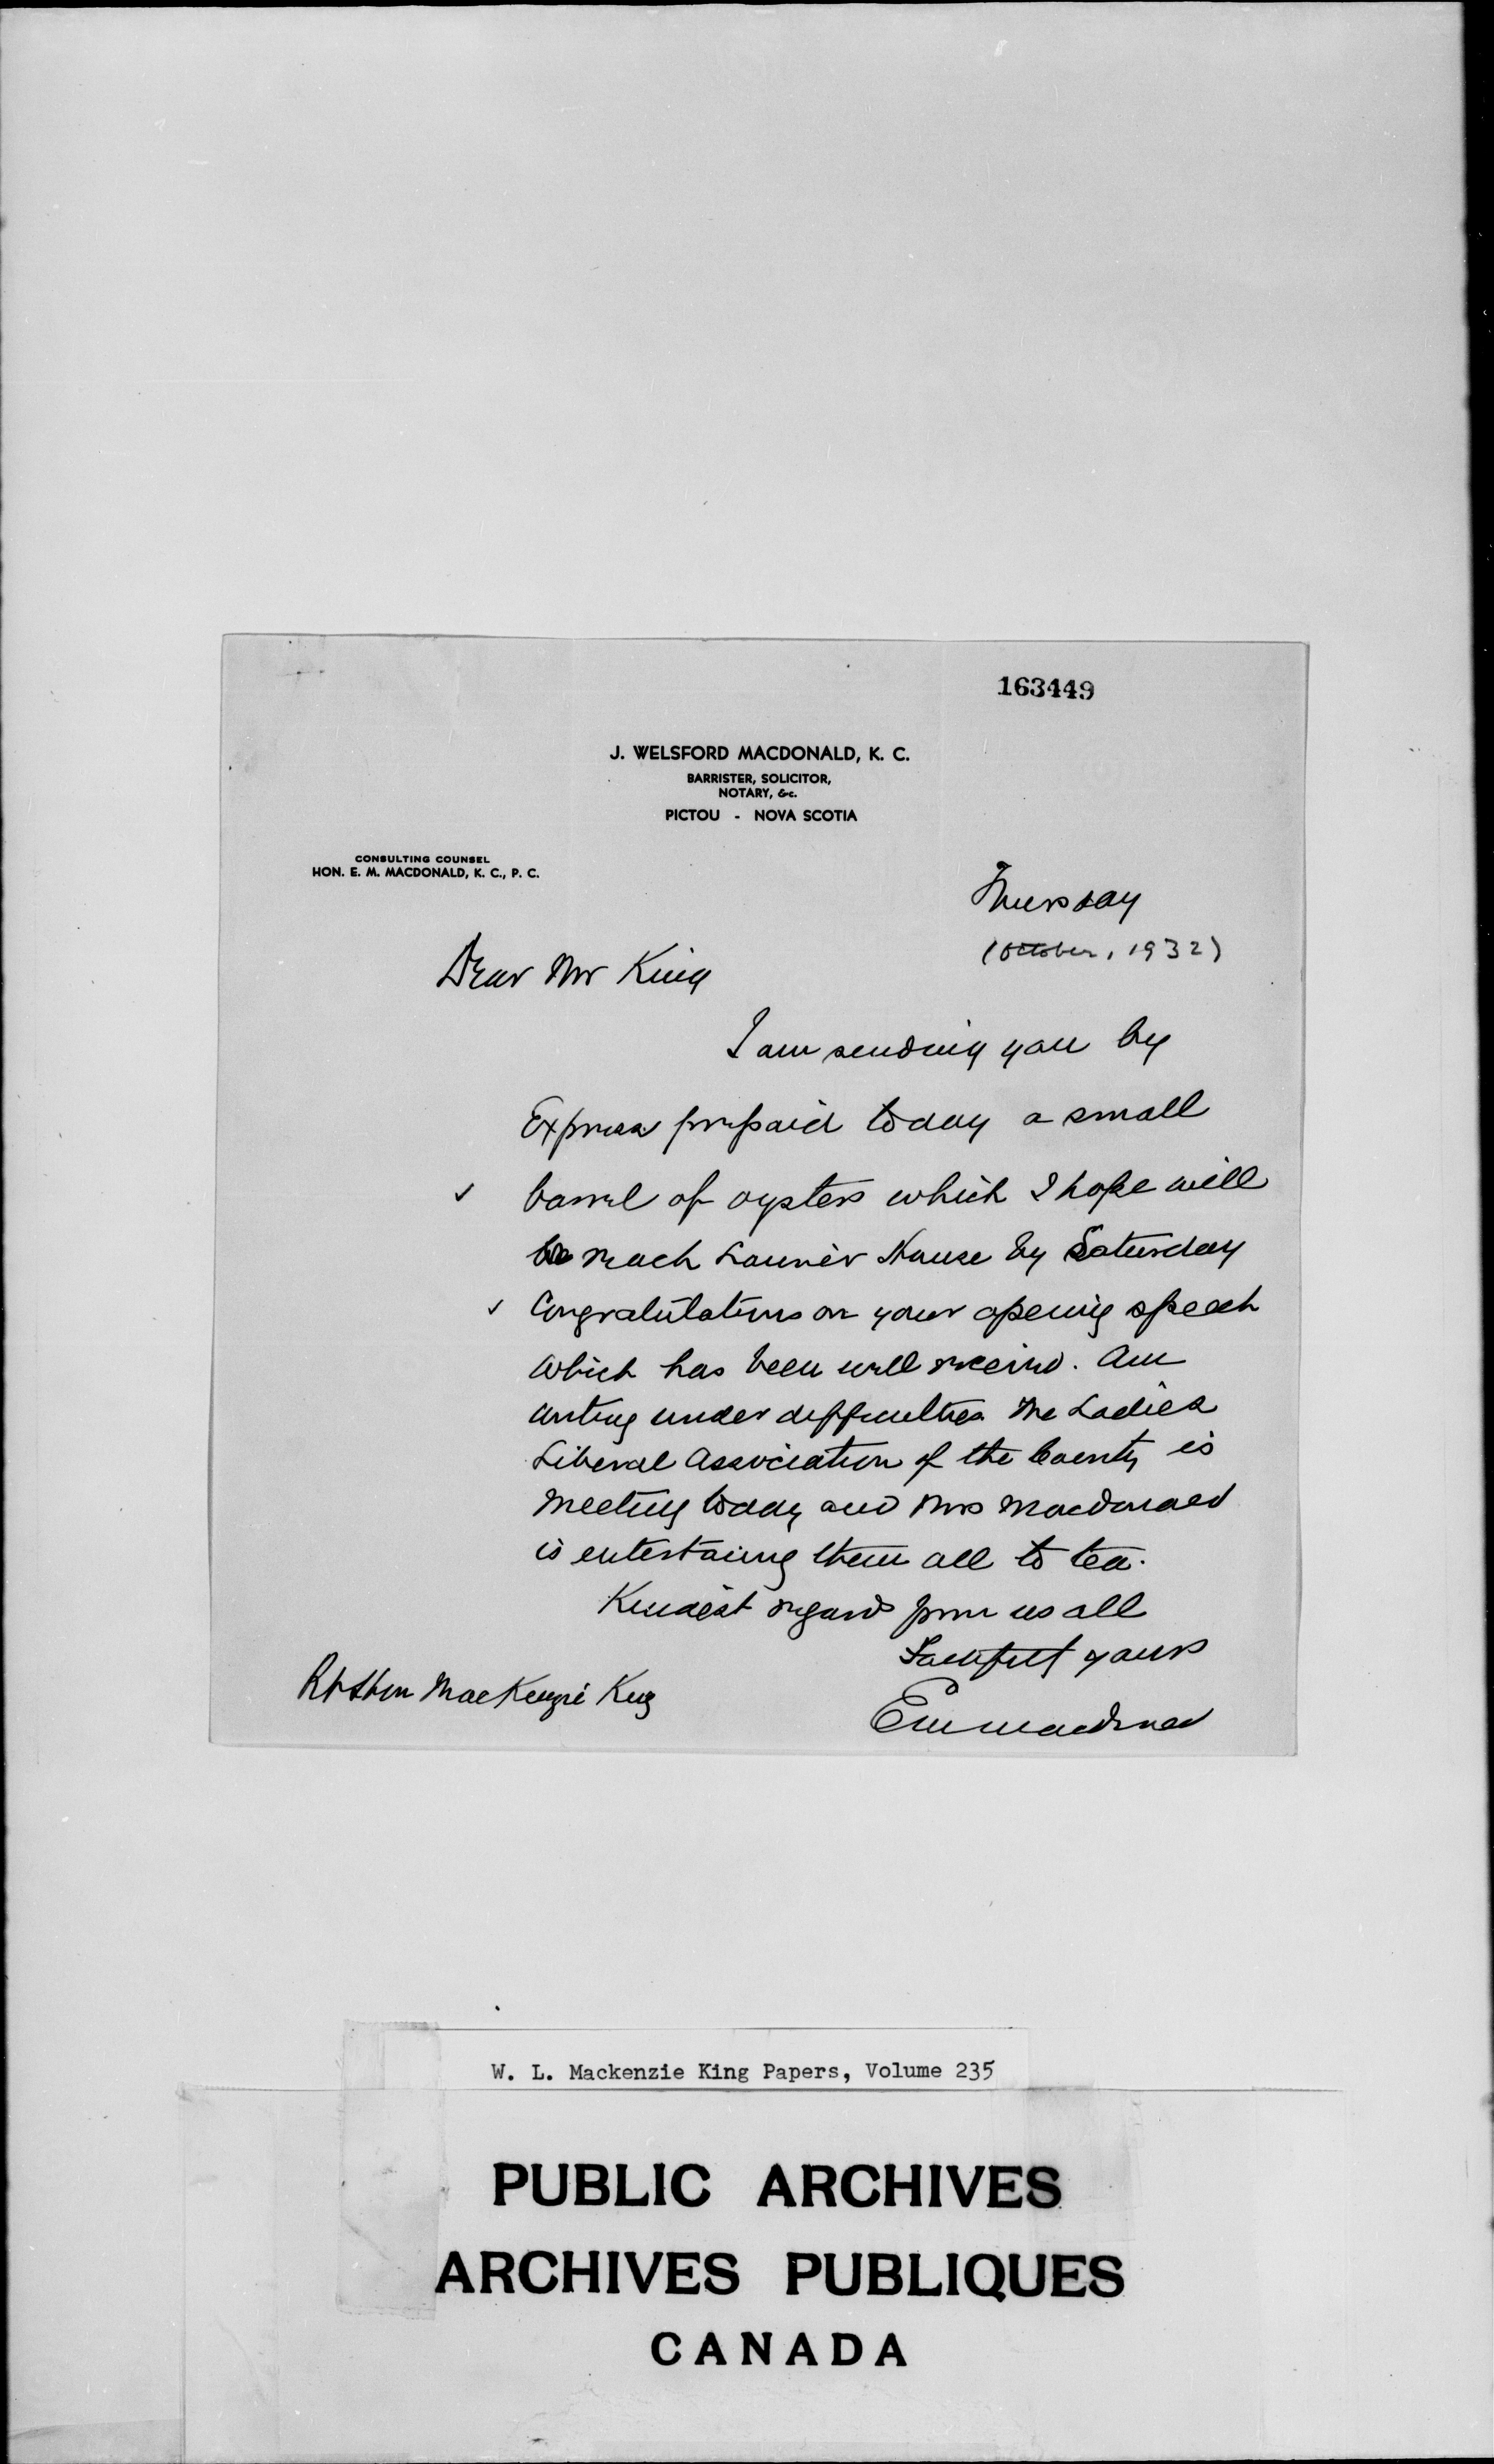 163449
J. WELSFORD MACDONALD, K. C.
BARRISTER, SOLICITOR,
NOTARY, &c.
PICTOU - NOVA SCOTIA
CONSULTING COUNSEL
HON. E. M. MACDONALD, K. C., P. C.
Thursday
(October, 1932)
Dear Mr King
I am sending you by
Express prepaid today a small
✓ barrel of oysters which I hope will
reach Laurier House by Saturday
✓ Congratulations on your opening speech
which has been well received. Am
writing under difficulties The Ladies
Liberal Association of the County is
meeting today and Mrs Macdonald
is entertaining them all to tea.
Kindest regards from us all
Faithfully yours
EM Macdonald
Rt Hon MacKenzie King
W. L. Mackenzie King Papers, Volume 235
PUBLIC ARCHIVES
ARCHIVES PUBLIQUES
CANADA